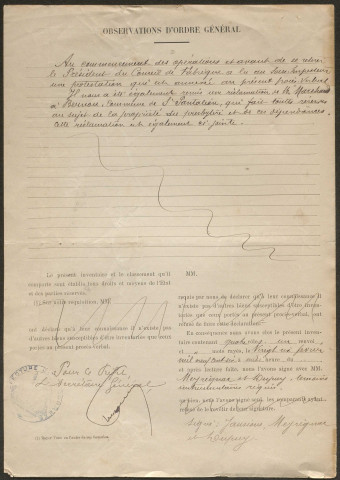 OBSERVATIONS D'ORDRE GÉNÉRAL
Au commencement des opérations et avant de se retirer
le Président du Conseil de Fabrique a lu ou
une protestation qui est annexée au présent procès-verbal
Il nous a été également remis une réclamation de M. Marchand
à commune de St Pantaléon, qui fait toutes réserves
au sujet de la propriété du presbytère et de ses dépendances.
Cette réclamation est également ci-jointe.
Le présent inventaire et le classement qu'il
comporte sont établis tous droits et moyens de l'État
et des parties réservés.
Sur notre réquisition, MM.
ont déclaré qu'à leur connaissance il n'existe pas
d'autres biens susceptibles d'être inventoriés que ceux
portés au présent procès-verbal.
Pour le Préfet,
Le Secrétaire Général
MM.
requis par nous de déclarer qu'à leur connaissance il
n'existe pas d'autres biens susceptibles d'être inventoriés
que ceux portés au présent procès-verbal, ont
refusé de faire cette déclaration.
En conséquence nous avons clos le présent inventaire
contenant
le vingt six février
mil neuf cent six à
et après lecture faite, nous l'avons signé avec MM.
Meyrignac et Dupuy, témoins
Signé: Meyrignac
et Dupuy